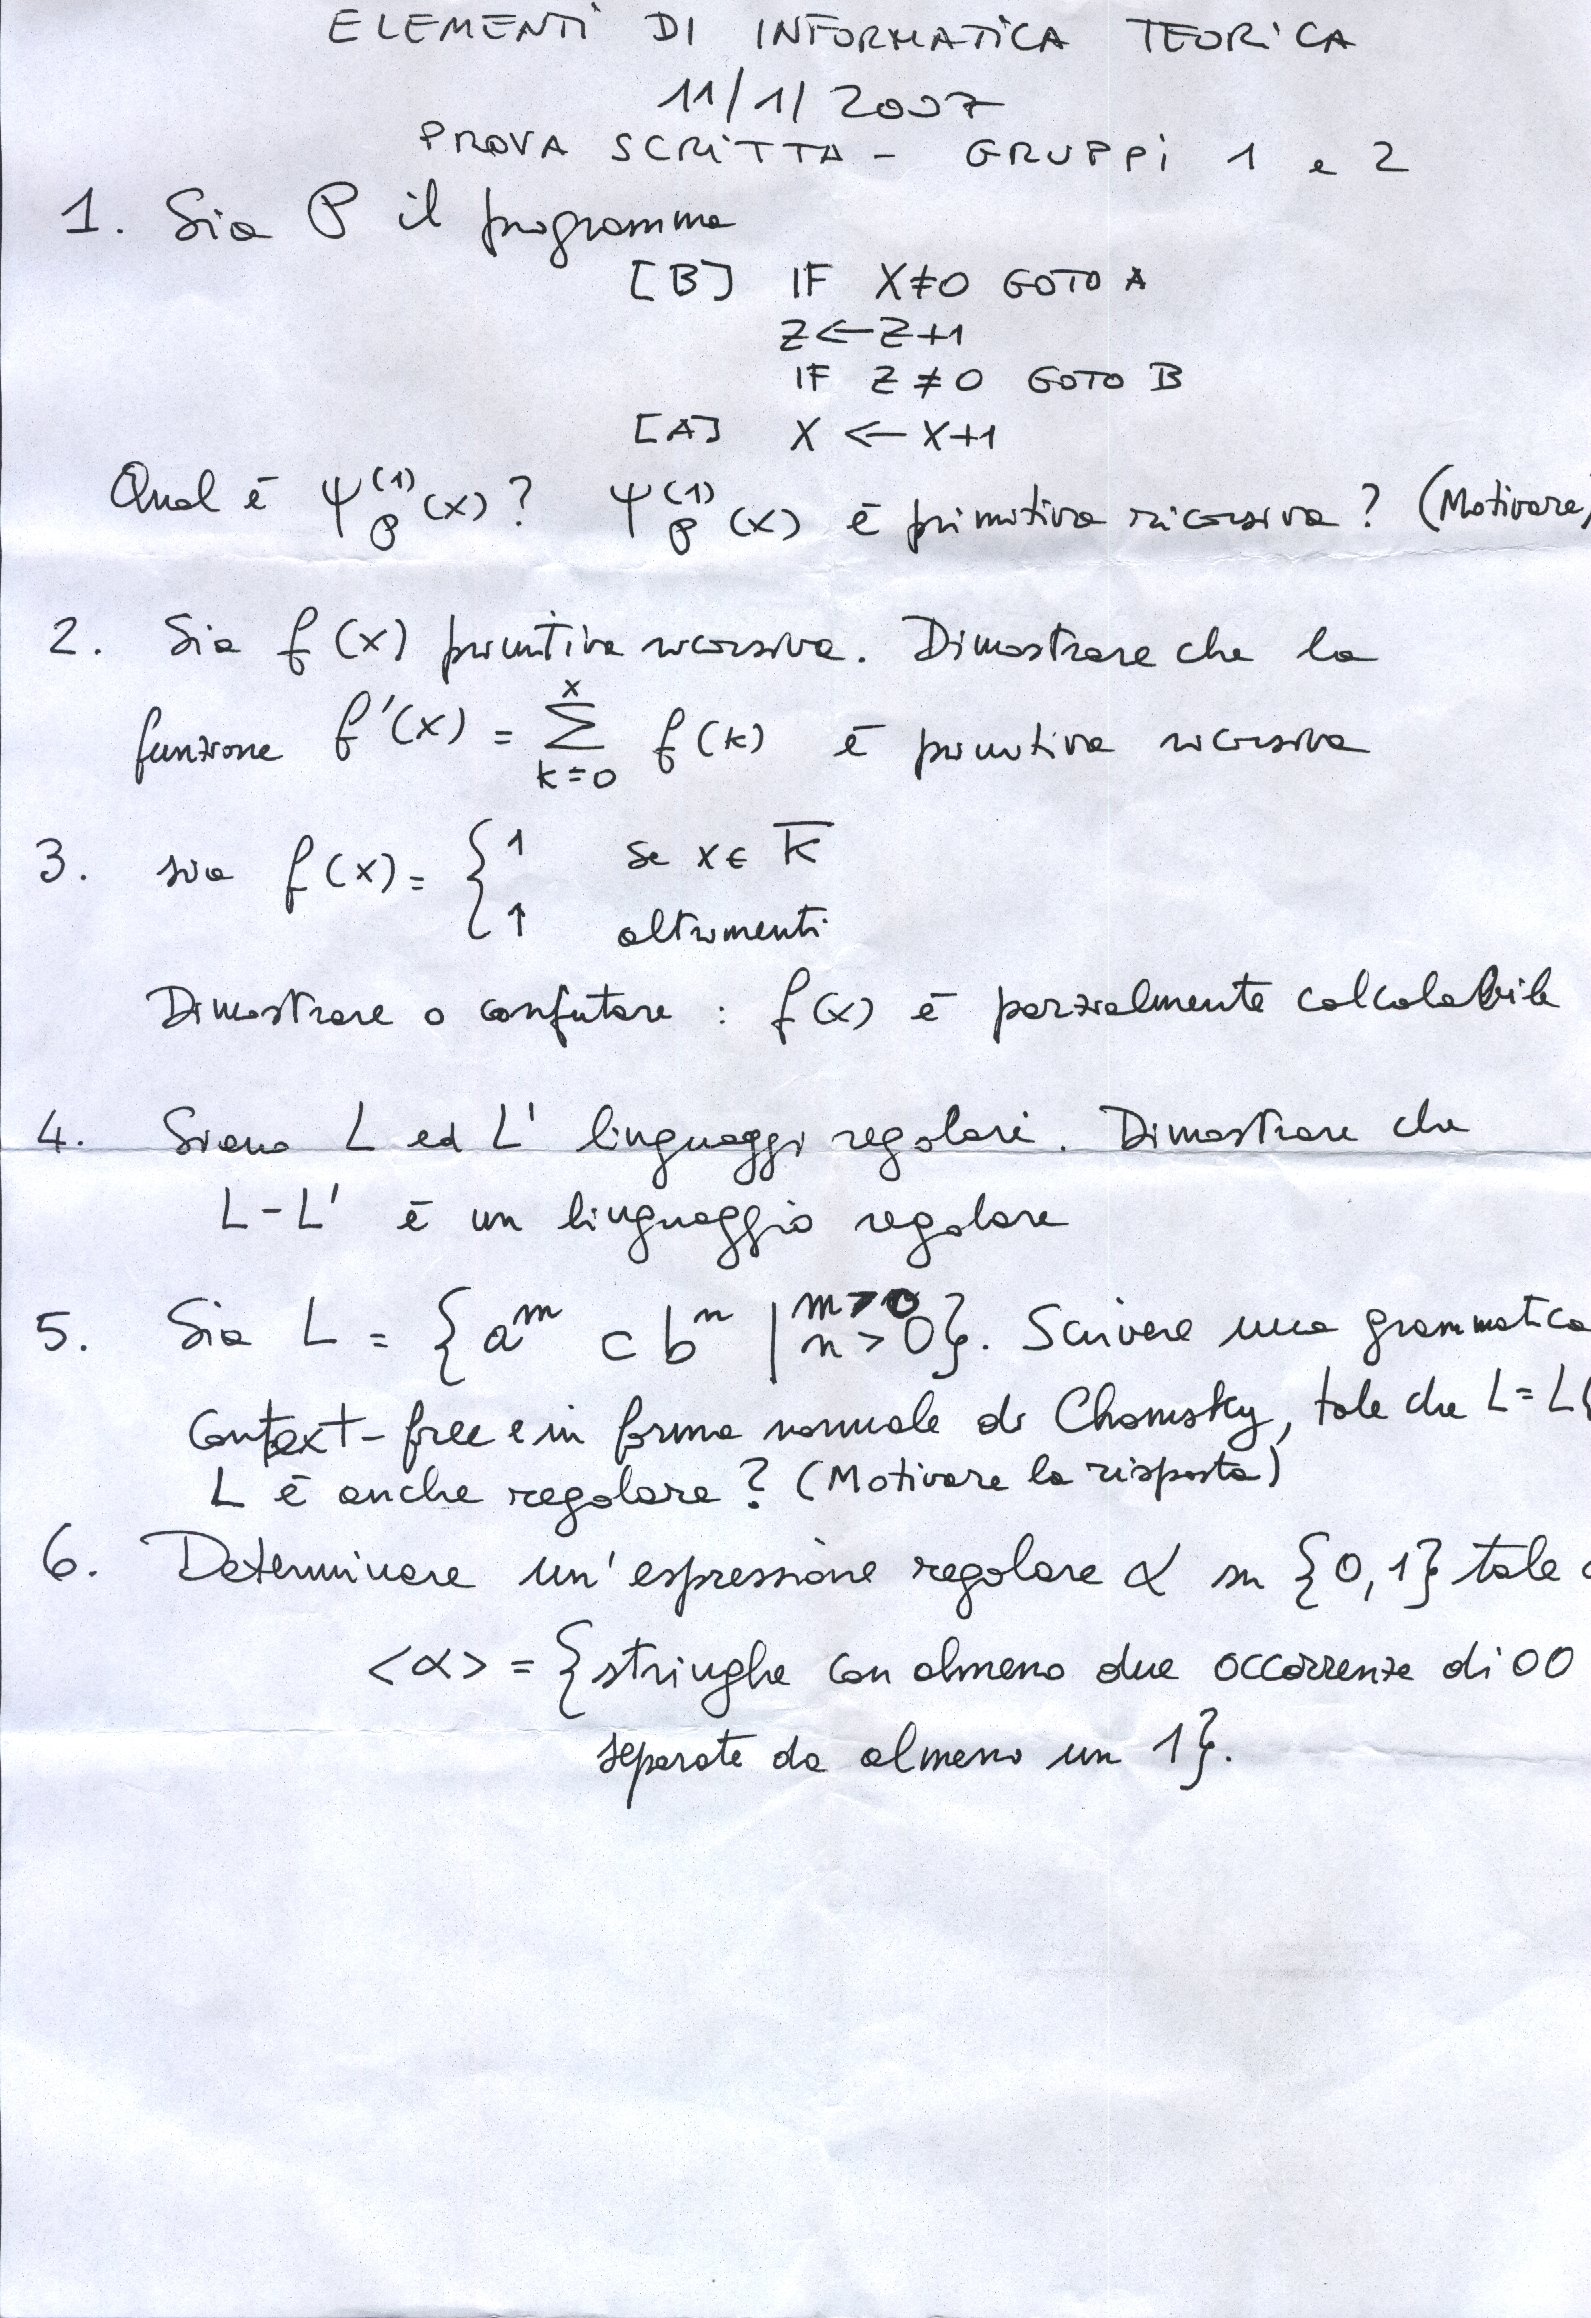 ELEMENTI DI INFORMATICA TEORICA
11/1/2007
PROVA SCRITTA - GRUPPI 1 e 2
1. Sia P il programma
[B] IF X≠0 GOTO A
Z←Z+1
IF Z≠0 GOTO B
[A] X←X+1
Qual è ψ_P^(1)(x)? ψ_P^(1)(x) è primitiva ricorsiva? (Motivare)
2. Sia f(x) primitiva ricorsiva. Dimostrare che la
funzione f'(x) = Σ_{k=0}^{x} f(k) è primitiva ricorsiva
3. sia f(x) = { 1 se x ∈ K̅
↑ altrimenti
Dimostrare o confutare : f(x) è parzialmente calcolabile
4. Siano L ed L' linguaggi regolari. Dimostrare che
L-L' è un linguaggio regolare
5. Sia L = {a^m c b^n | m>0 n>0}. Scrivere una grammatica
context-free e in forma normale di Chomsky, tale che L = L(
L è anche regolare? (Motivare la risposta)
6. Determinare un'espressione regolare α su {0,1} tale
<α> = {stringhe con almeno due occorrenze di 00
separate da almeno un 1}.